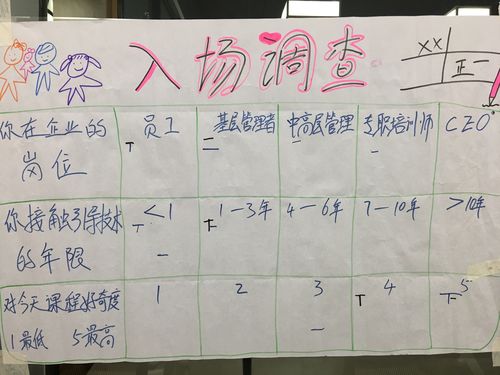 入场调查
XX
正一
你在企业的岗位 员工 基层管理者 中高层管理 专职培训师 CEO
T 二 一 一
你接触引导技术的年限 <1 1-3年 4-6年 7-10年 >10年
T 一 下
对今天课程好奇度 1 2 3 4 5
1最低 5最高 一 T 下